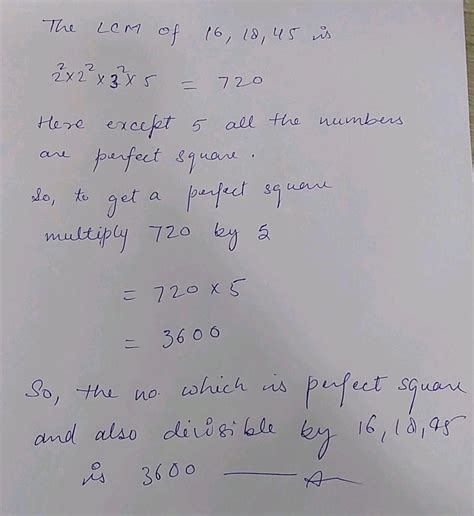 The LCM of 16, 18, 45 is
2² × 2² × 3² × 5 = 720
Here except 5 all the numbers
are perfect square.
So, to get a perfect square
multiply 720 by 5
= 720 × 5
= 3600
So, the no. which is perfect square
and also divisible by 16, 18, 45
is 3600